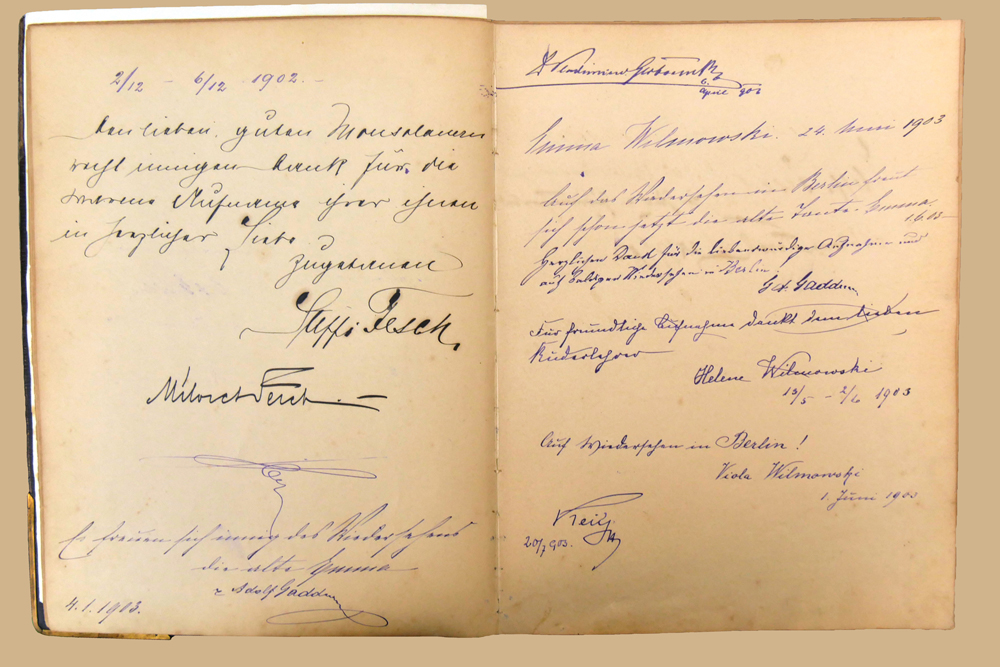 2/12 – 6/12 1902. –
Den lieben, guten
recht innigen Dank für die
Aufname ihrer ihnen
in herzlicher Liebe
zugetanen
Steffi Fesch
4.1.1903.
Es freuen sich innig des Wiedersehens
die alte Emma
u Adolf Gaddum
6.
April 903
Emma Wilmowski. 24. Mai 1903
Auf das Wiedersehen in Berlin freut
sich schon jetzt die alte Tante Emma.
Herzlichen Dank für die liebenswürdige Aufnahme und
auf baldiges Wiedersehen in Berlin.
Gaddum
Für freundliche Aufnahme dankt dem lieben
Ruderlehrer
Helene Wilmowski
13/5 – 2/6 1903
Auf Wiedersehen in Berlin!
Viola Wilmowski
1. Juni 1903
20/7 903.